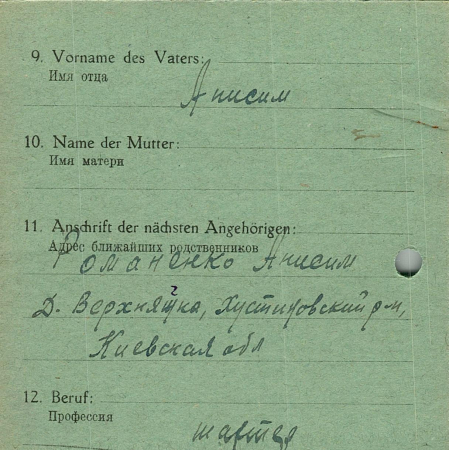 9. Vorname des Vaters:
Имя отца
Анисим
10. Name der Mutter:
Имя матери
11. Anschrift der nächsten Angehörigen:
Адрес ближайших родственников
Романенко Анисим
Д. Верхнячка, Христиновский р-н,
Киевская обл
12. Beruf:
Профессия